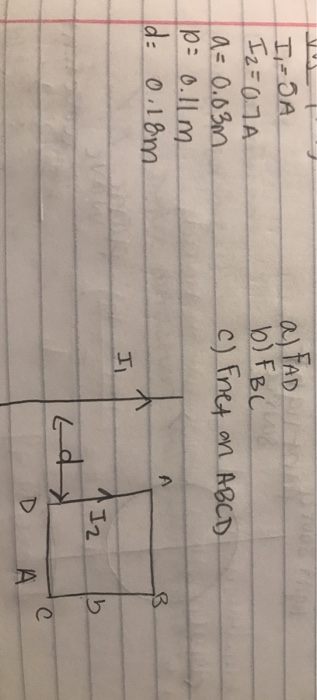 I₁=5A
I₂=0.7A
a= 0.03m
p= 0.11m
d= 0.18m
a) FAD
b) FBC
c) Fnet on ABCD
I₁
A
B
I₂
b
d
D
A
C